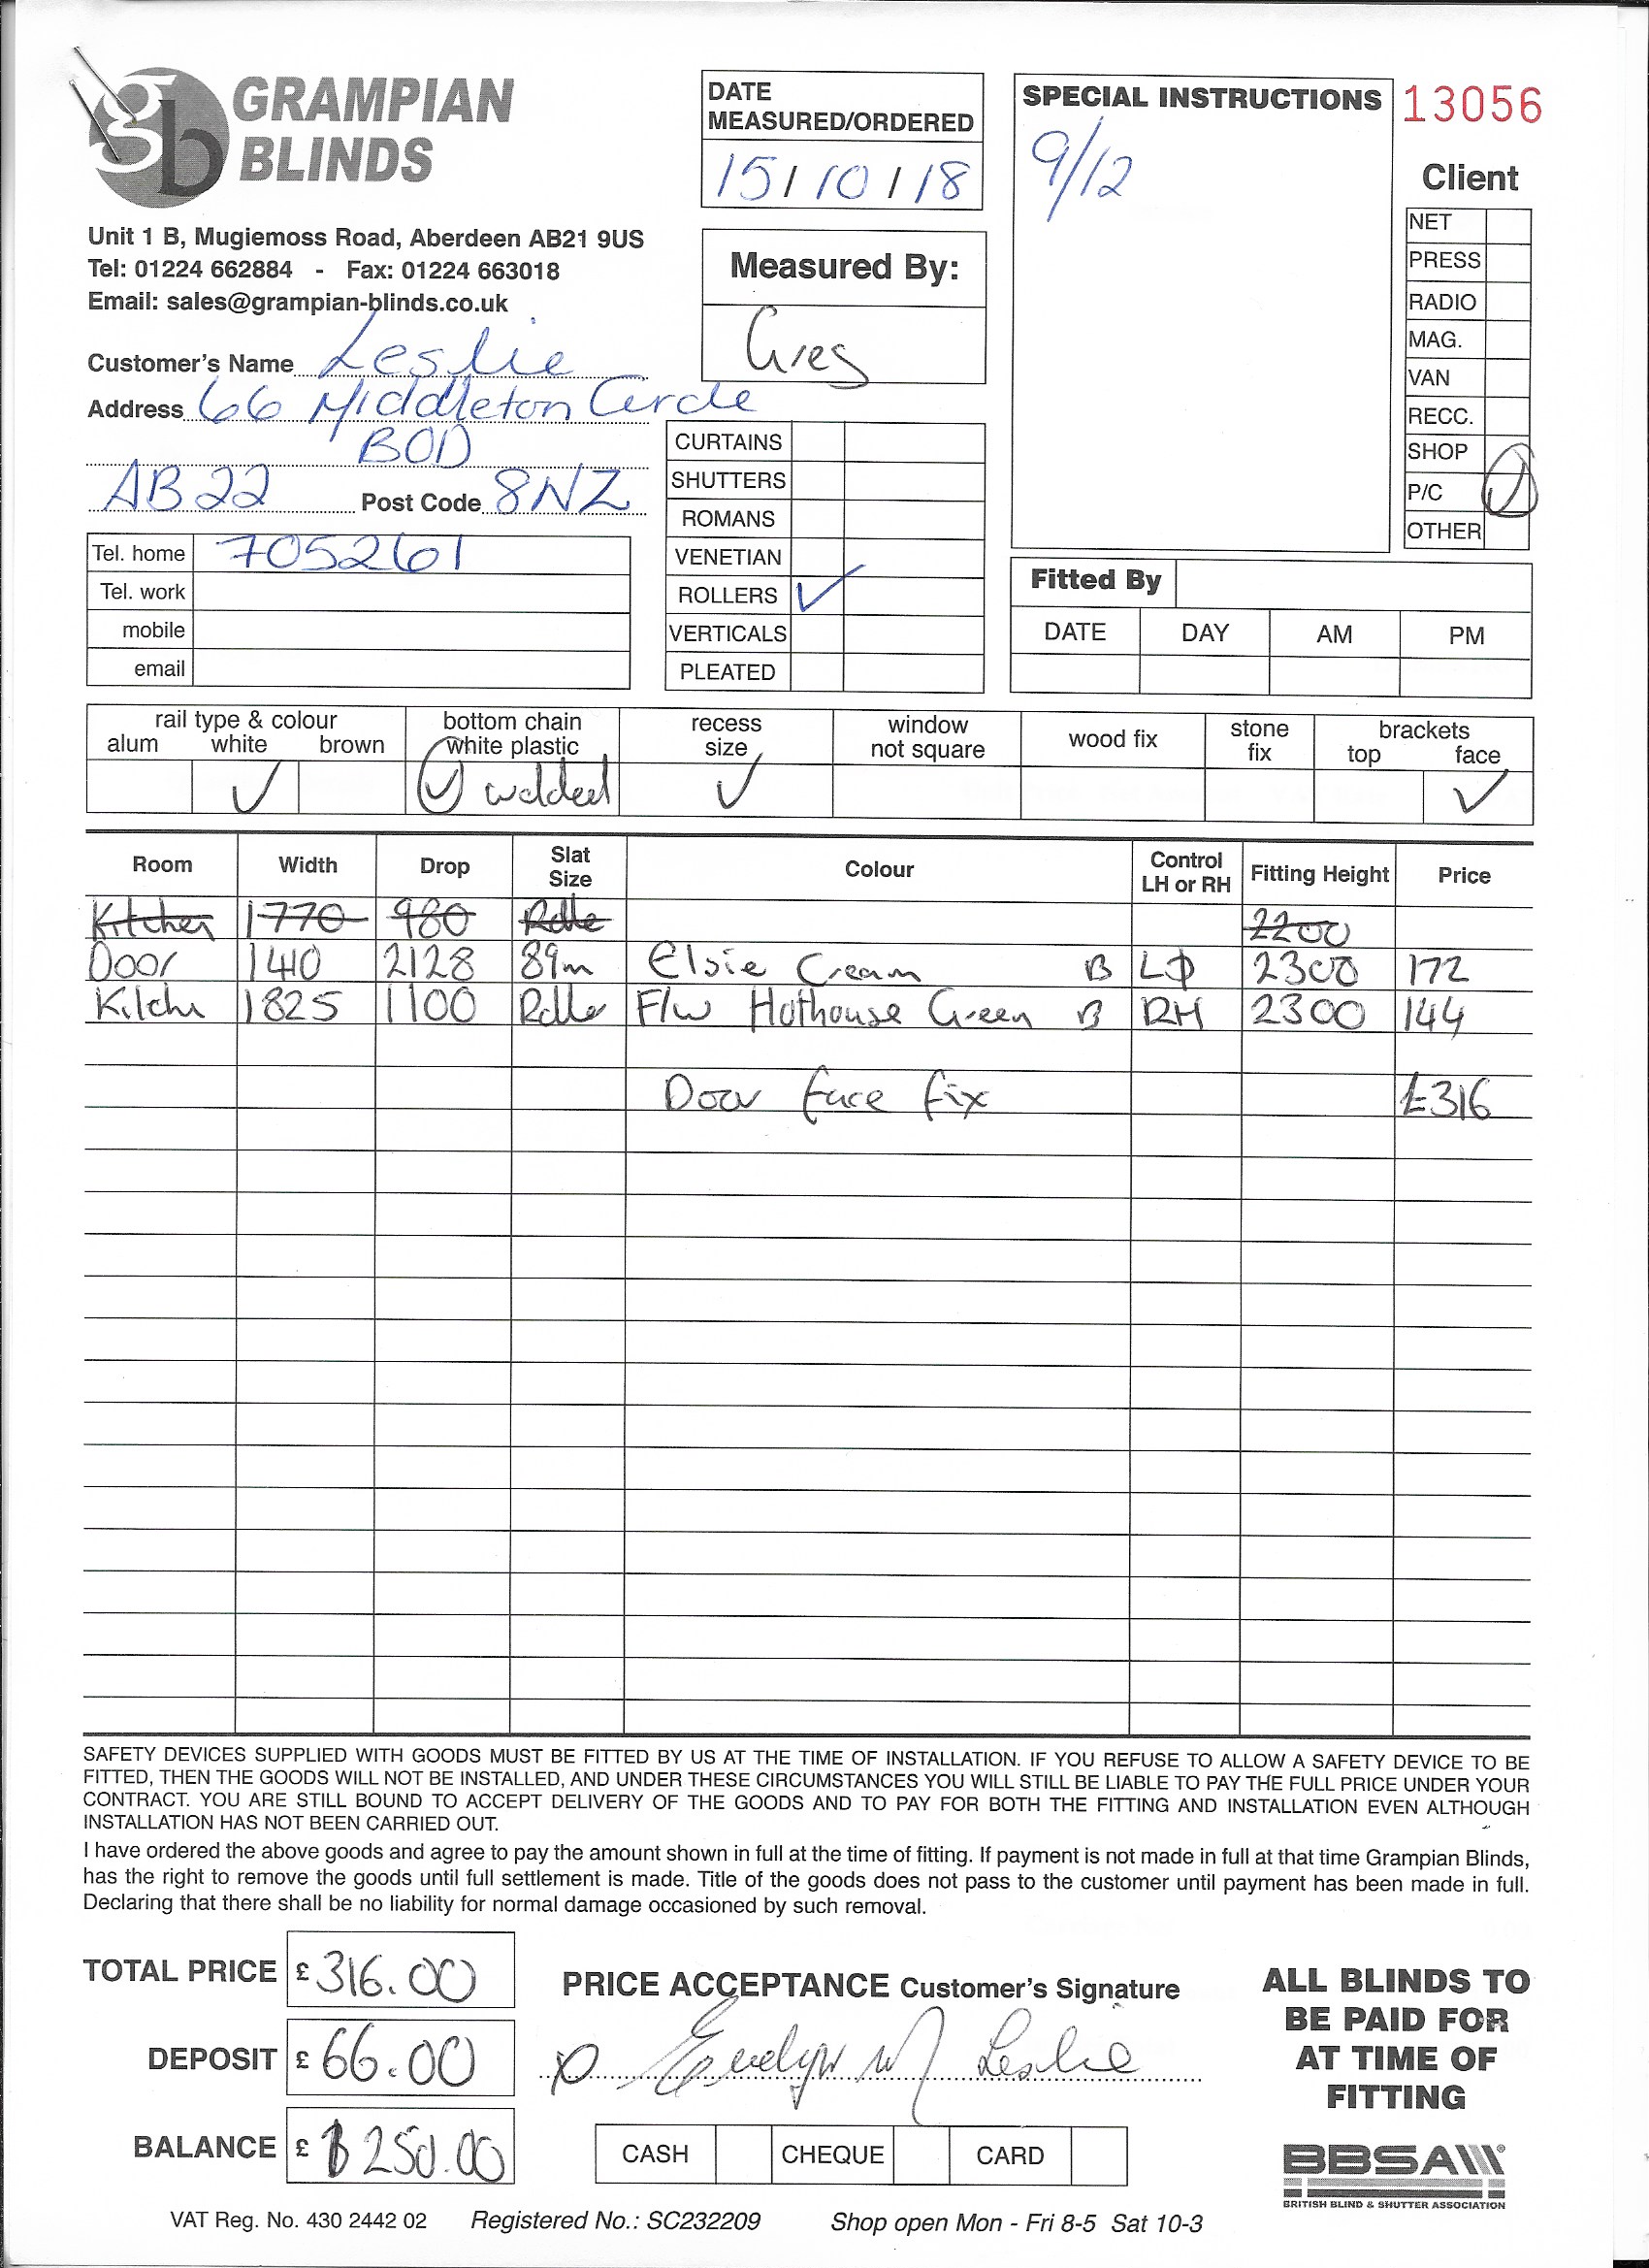 GRAMPIAN
BLINDS
Unit 1 B, Mugiemoss Road, Aberdeen AB21 9US
Tel: 01224 662884 - Fax: 01224 663018
Email: sales@grampian-blinds.co.uk
Customer's Name Leslie
Address 66 Middleton Circle
BOD
AB22 Post Code 8NZ
Tel. home 705261
Tel. work
mobile
email
DATE
MEASURED/ORDERED
15/10/18
Measured By:
Greg
CURTAINS
SHUTTERS
ROMANS
VENETIAN
ROLLERS ✓
VERTICALS
PLEATED
SPECIAL INSTRUCTIONS
9/12
13056
Client
NET
PRESS
RADIO
MAG.
VAN
RECC.
SHOP
P/C ✓
OTHER
Fitted By
DATE DAY AM PM
rail type & colour bottom chain recess window wood fix stone brackets
alum white brown white plastic size not square fix top face
✓ ✓ welded ✓ ✓
Room Width Drop Slat Size Colour Control LH or RH Fitting Height Price
Kitchen 1770 980 Rolle 2200
Door 1410 2128 89m Elsie Cream B 2300 172
Kitche 1825 1100 Roller F/w Hothouse Green B RH 2300 144
Door face fix £316
SAFETY DEVICES SUPPLIED WITH GOODS MUST BE FITTED BY US AT THE TIME OF INSTALLATION. IF YOU REFUSE TO ALLOW A SAFETY DEVICE TO BE
FITTED, THEN THE GOODS WILL NOT BE INSTALLED, AND UNDER THESE CIRCUMSTANCES YOU WILL STILL BE LIABLE TO PAY THE FULL PRICE UNDER YOUR
CONTRACT. YOU ARE STILL BOUND TO ACCEPT DELIVERY OF THE GOODS AND TO PAY FOR BOTH THE FITTING AND INSTALLATION EVEN ALTHOUGH
INSTALLATION HAS NOT BEEN CARRIED OUT.
I have ordered the above goods and agree to pay the amount shown in full at the time of fitting. If payment is not made in full at that time Grampian Blinds,
has the right to remove the goods until full settlement is made. Title of the goods does not pass to the customer until payment has been made in full.
Declaring that there shall be no liability for normal damage occasioned by such removal.
TOTAL PRICE £ 316.00
DEPOSIT £ 66.00
BALANCE £ 250.00
PRICE ACCEPTANCE Customer's Signature
Evelyn M Leslie
CASH CHEQUE CARD
ALL BLINDS TO
BE PAID FOR
AT TIME OF
FITTING
BBSA
BRITISH BLIND & SHUTTER ASSOCIATION
VAT Reg. No. 430 2442 02 Registered No.: SC232209 Shop open Mon - Fri 8-5 Sat 10-3